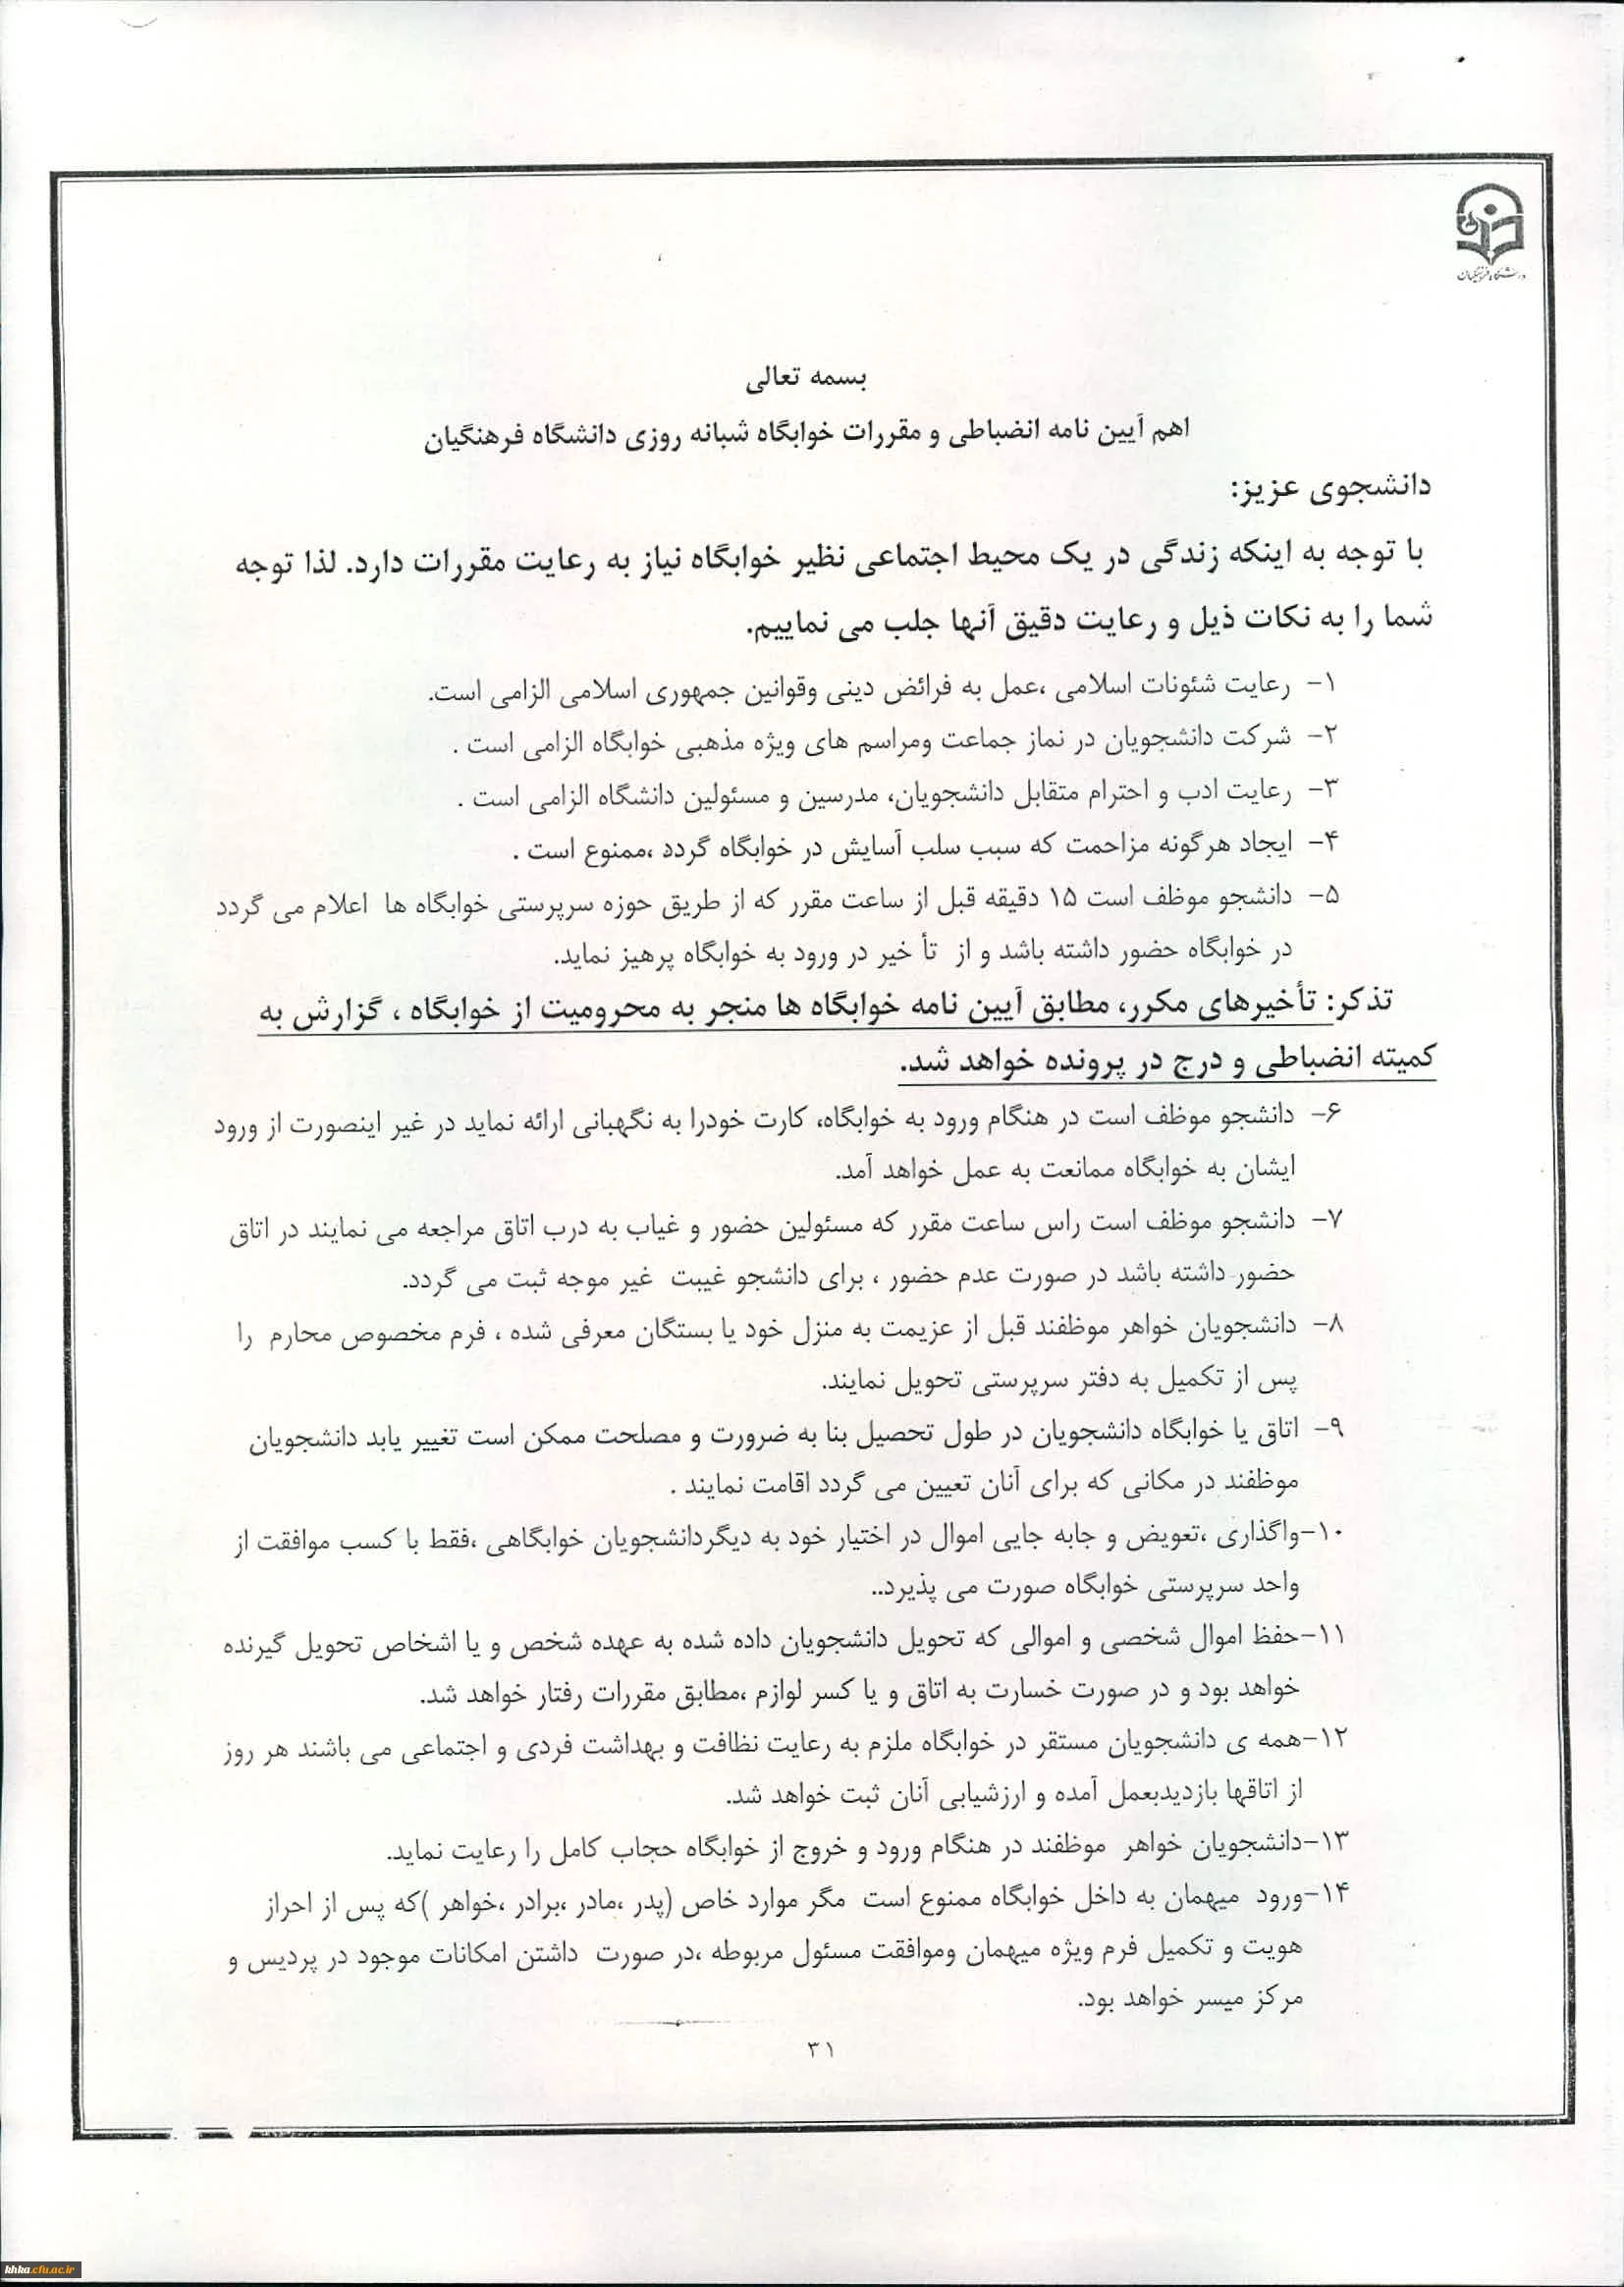 دانشگاه فرهنگیان
بسمه تعالی
اهم آیین نامه انضباطی و مقررات خوابگاه شبانه روزی دانشگاه فرهنگیان
دانشجوی عزیز:
با توجه به اینکه زندگی در یک محیط اجتماعی نظیر خوابگاه نیاز به رعایت مقررات دارد. لذا توجه
شما را به نکات ذیل و رعایت دقیق آنها جلب می نماییم.
۱- رعایت شئونات اسلامی ،عمل به فرائض دینی وقوانین جمهوری اسلامی الزامی است.
۲- شرکت دانشجویان در نماز جماعت ومراسم های ویژه مذهبی خوابگاه الزامی است .
۳- رعایت ادب و احترام متقابل دانشجویان، مدرسین و مسئولین دانشگاه الزامی است .
۴- ایجاد هرگونه مزاحمت که سبب سلب آسایش در خوابگاه گردد ،ممنوع است .
۵- دانشجو موظف است ۱۵ دقیقه قبل از ساعت مقرر که از طریق حوزه سرپرستی خوابگاه ها اعلام می گردد
در خوابگاه حضور داشته باشد و از تأ خیر در ورود به خوابگاه پرهیز نماید.
تذکر: تأخیرهای مکرر، مطابق آیین نامه خوابگاه ها منجر به محرومیت از خوابگاه ، گزارش به
کمیته انضباطی و درج در پرونده خواهد شد.
۶- دانشجو موظف است در هنگام ورود به خوابگاه، کارت خودرا به نگهبانی ارائه نماید در غیر اینصورت از ورود
ایشان به خوابگاه ممانعت به عمل خواهد آمد.
۷- دانشجو موظف است راس ساعت مقرر که مسئولین حضور و غیاب به درب اتاق مراجعه می نمایند در اتاق
حضور داشته باشد در صورت عدم حضور ، برای دانشجو غیبت غیر موجه ثبت می گردد.
۸- دانشجویان خواهر موظفند قبل از عزیمت به منزل خود یا بستگان معرفی شده ، فرم مخصوص محارم را
پس از تکمیل به دفتر سرپرستی تحویل نمایند.
۹- اتاق یا خوابگاه دانشجویان در طول تحصیل بنا به ضرورت و مصلحت ممکن است تغییر یابد دانشجویان
موظفند در مکانی که برای آنان تعیین می گردد اقامت نمایند .
۱۰-واگذاری ،تعویض و جابه جایی اموال در اختیار خود به دیگردانشجویان خوابگاهی ،فقط با کسب موافقت از
واحد سرپرستی خوابگاه صورت می پذیرد..
۱۱-حفظ اموال شخصی و اموالی که تحویل دانشجویان داده شده به عهده شخص و یا اشخاص تحویل گیرنده
خواهد بود و در صورت خسارت به اتاق و یا کسر لوازم ،مطابق مقررات رفتار خواهد شد.
۱۲-همه ی دانشجویان مستقر در خوابگاه ملزم به رعایت نظافت و بهداشت فردی و اجتماعی می باشند هر روز
از اتاقها بازدیدبعمل آمده و ارزشیابی آنان ثبت خواهد شد.
۱۳-دانشجویان خواهر موظفند در هنگام ورود و خروج از خوابگاه حجاب کامل را رعایت نماید.
۱۴-ورود میهمان به داخل خوابگاه ممنوع است مگر موارد خاص (پدر ،مادر ،برادر ،خواهر )که پس از احراز
هویت و تکمیل فرم ویژه میهمان وموافقت مسئول مربوطه ،در صورت داشتن امکانات موجود در پردیس و
مرکز میسر خواهد بود.
۳۱
khka.cfu.ac.ir